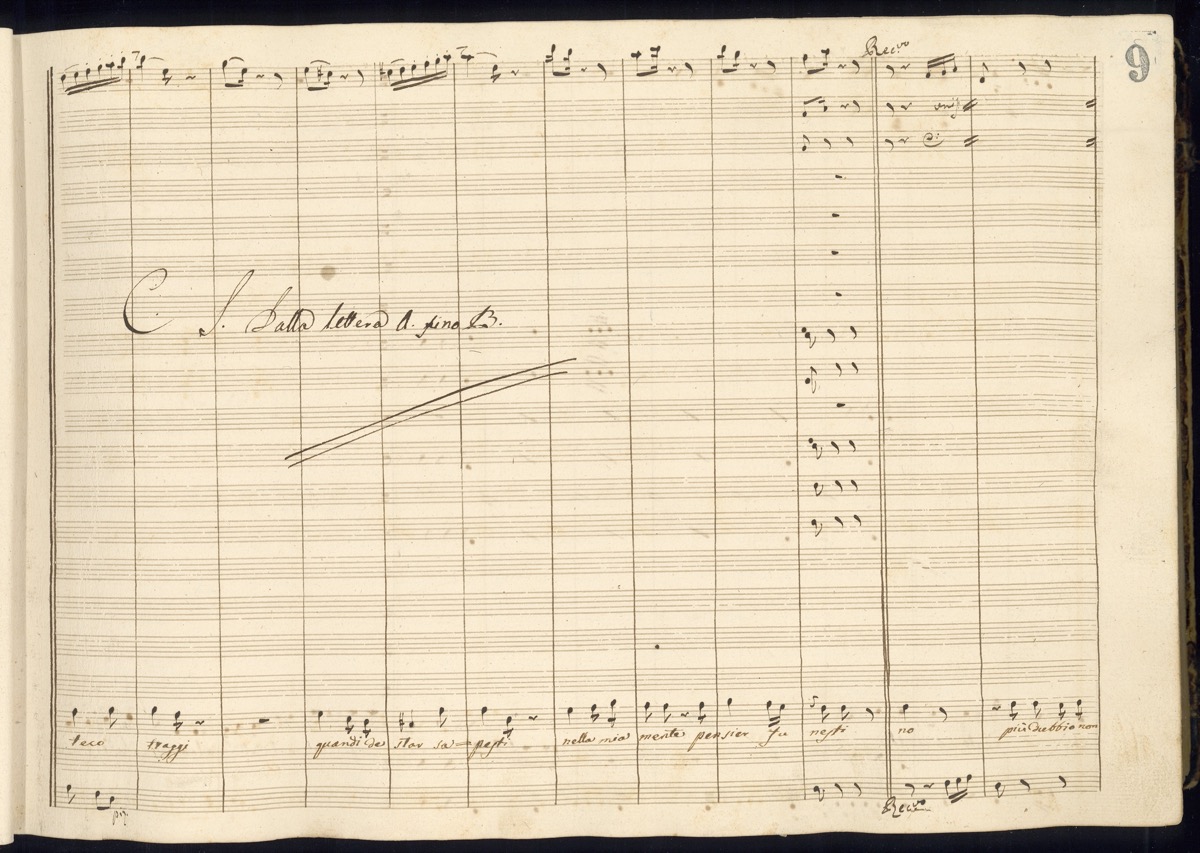 9
Recvo
unis
C. S. Dalla lettera A. fino B.
teco traggi quandi de star sa= pesti nella mia mente pensier fu nesti no più dubbio non
Recvo